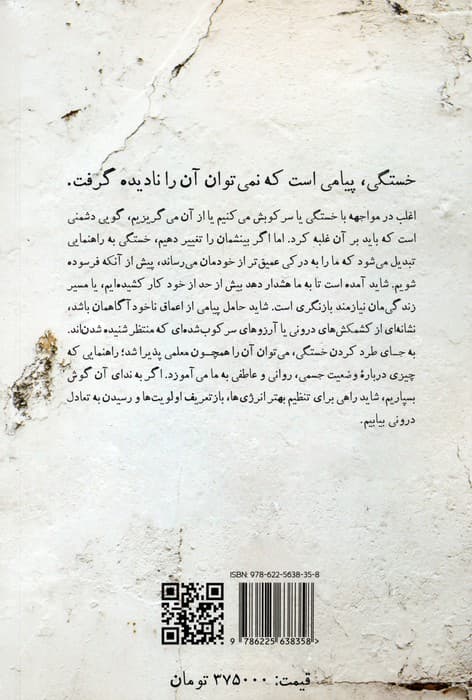 خستگی، پیامی است که نمی‌توان آن را نادیده گرفت.
اغلب در مواجهه با خستگی یا سرکوبش می‌کنیم یا از آن می‌گریزیم، گویی دشمنی
است که باید بر آن غلبه کرد. اما اگر بینشمان را تغییر دهیم، خستگی به راهنمایی
تبدیل می‌شود که ما را به درکی عمیق‌تر از خودمان می‌رساند، پیش از آنکه فرسوده
شویم. شاید آمده است تا به ما هشدار دهد بیش از حد از خود کار کشیده‌ایم، یا مسیر
زندگی‌مان نیازمند بازنگری است. شاید حامل پیامی از اعماق ناخودآگاهمان باشد،
نشانه‌ای از کشمکش‌های درونی یا آرزوهای سرکوب‌شده‌ای که منتظر شنیده شدن‌اند.
به جای طرد کردن خستگی، می‌توان آن را همچون معلمی پذیرا شد؛ راهنمایی که
چیزی دربارهٔ وضعیت جسمی، روانی و عاطفی به ما می‌آموزد. اگر به ندای آن گوش
بسپاریم، شاید راهی برای تنظیم بهتر انرژی‌ها، بازتعریف اولویت‌ها و رسیدن به تعادل
درونی بیابیم.
ISBN: 978-622-5638-35-8
9 786225 638358 >
قیمت: ۳۷۵۰۰۰ تومان